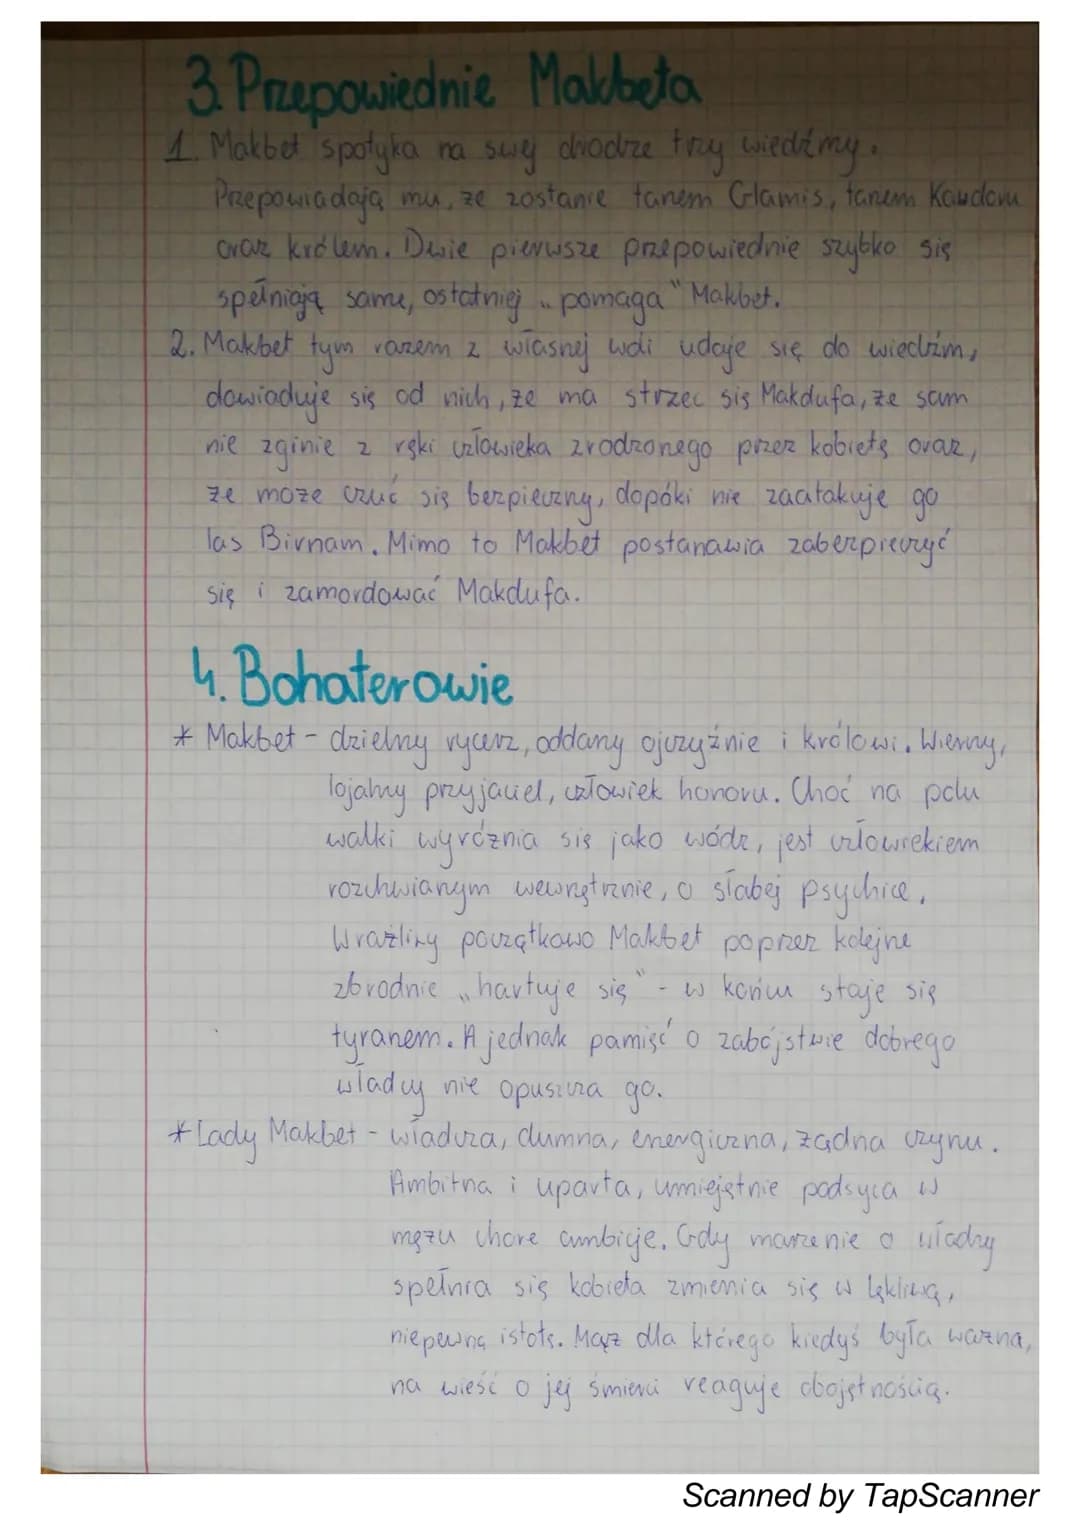 3. Przepowiednie Makbeta
1. Makbet spotyka na swej drodze trzy wiedźmy.
Przepowiadają mu, że zostanie tanem Glamis, tanem Kawdoru
oraz królem. Dwie pierwsze przepowiednie szybko się
spełniają same, ostatniej „pomaga" Makbet.
2. Makbet tym razem z własnej woli udaje się do wiedźm,
dowiaduje się od nich, że ma strzec się Makdufa, że sam
nie zginie z ręki człowieka zrodzonego przez kobietę oraz,
że może czuć się bezpieczny, dopóki nie zaatakuje go
las Birnam. Mimo to Makbet postanawia zabezpieczyć
się i zamordować Makdufa.
4. Bohaterowie
* Makbet - dzielny rycerz, oddany ojczyźnie i królowi. Wierny,
lojalny przyjaciel, człowiek honoru. Choć na polu
walki wyróżnia się jako wódz, jest człowiekiem
rozchwianym wewnętrznie, o słabej psychice.
Wrażliwy początkowo Makbet poprzez kolejne
zbrodnie „hartuje się" - w końcu staje się
tyranem. A jednak pamięć o zabójstwie dobrego
władcy nie opuszcza go.
* Lady Makbet - władcza, dumna, energiczna, żądna czynu.
Ambitna i uparta, umiejętnie podsyca w
mężu chore ambicje. Gdy marzenie o władzy
spełnia się kobieta zmienia się w lękliwą,
niepewną istotę. Mąż dla którego kiedyś była ważna,
na wieść o jej śmierci reaguje obojętnością.
Scanned by TapScanner